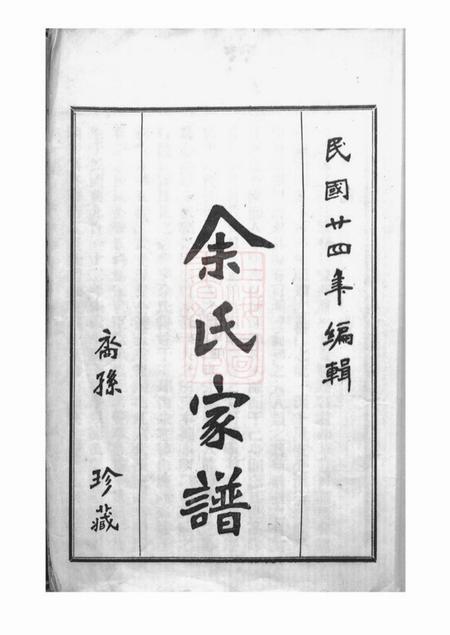 民國廿四年編輯
余氏家譜
裔孫 珍藏